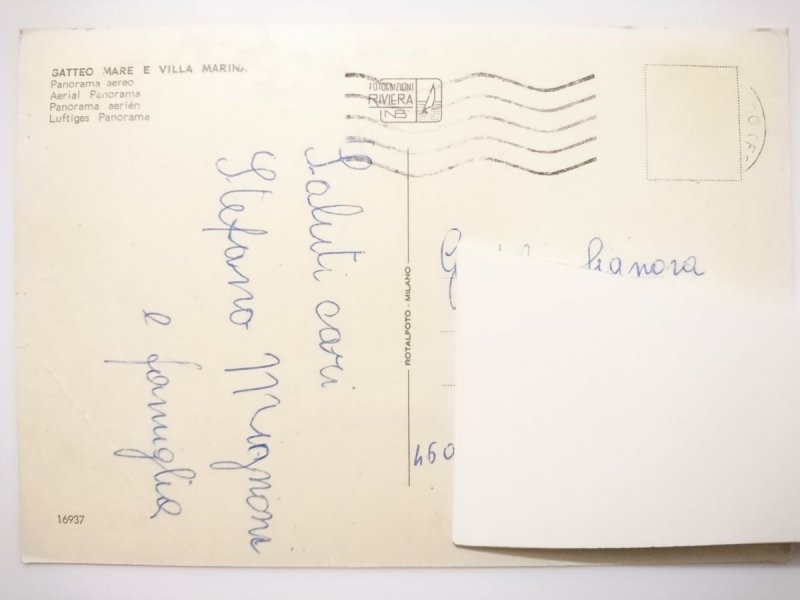 GATTEO MARE E VILLA MARINA
Panorama aereo
Aerial Panorama
Panorama aerién
Luftiges Panorama
FOTOEDIZIONI
RIVIERA
NB
Saluti cari
Stefano Mignoni
e famiglia
ROTALFOTO - MILANO
Gianora
460
16937